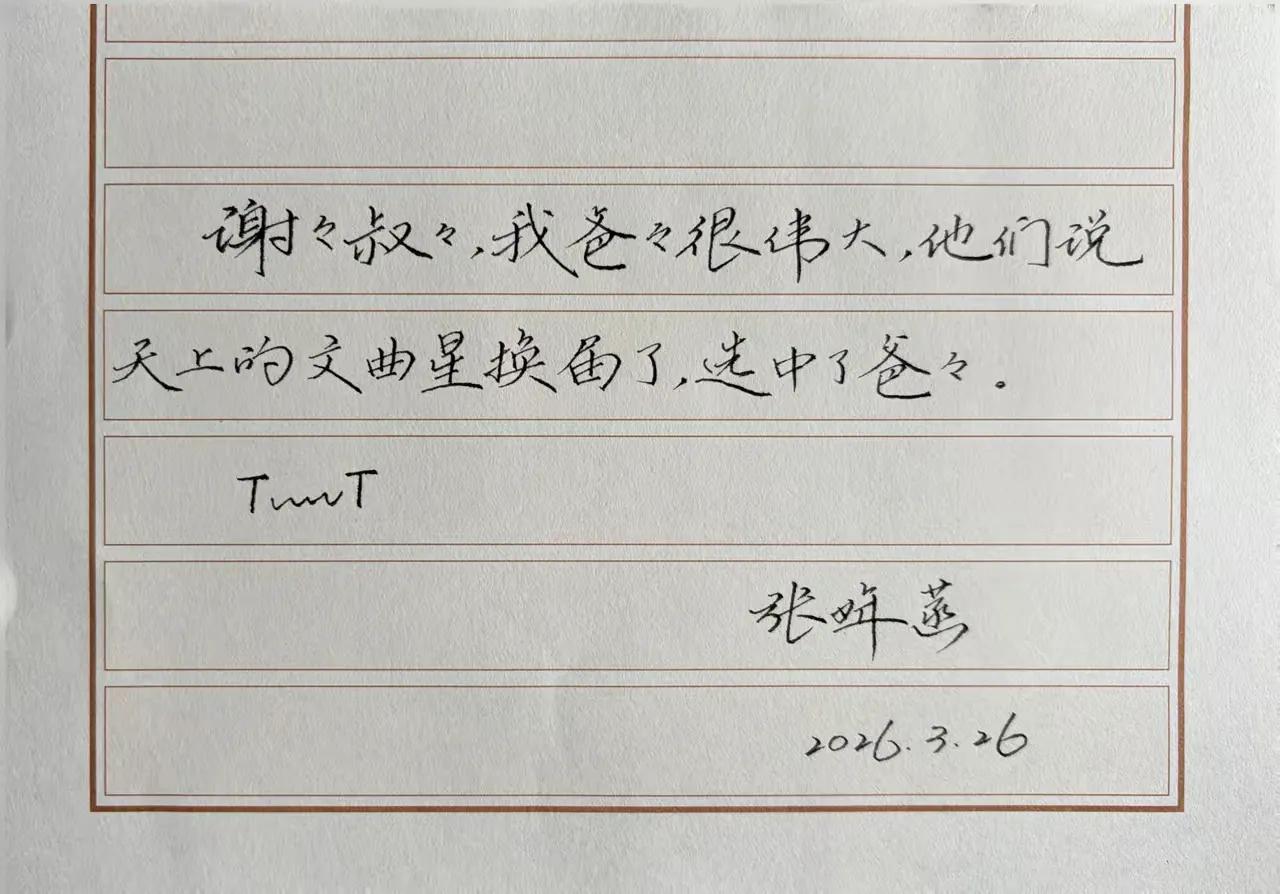 谢々叔々,我爸々很伟大,他们说
天上的文曲星换届了,选中了爸々。
T﹏T
张姩菡
2026.3.26